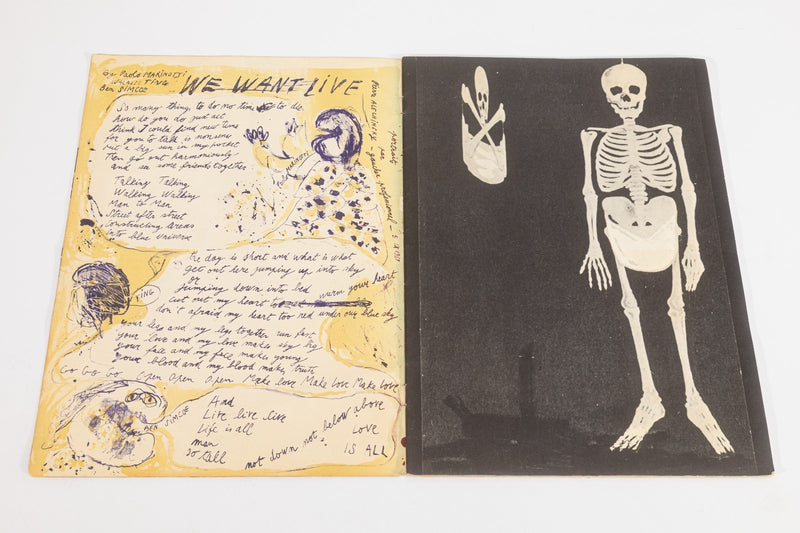 by Paolo MARINOTTI
WALASSE TING
Ben SIMCOE
WE WANT LIVE
So many thing to do no time to die
how do you do just all
think I could find new time
for you to talk is nonsense
put a big sun in my pocket
Ten go out harmoniously
and see some friends together
Talking Talking
Walking Walking
Man to Man
Street after street
constructing areas
into blue universe
Pierre ALECHINSKY
portraits
par
gaucher professionnel
MARINOTTI
the day is short and what is what
get out here jumping up into sky
or
jumping down into bed
cut out my heart to warm your heart
don't afraid my heart too red under our blue sky
TING
your legs and my legs together run fast
your love and my love makes sky big
your face and my face makes young
your blood and my blood makes truth
Go Go Go Open Open Open Make love Make Love Make Love
BEN SIMCOE
And
Live live live
Life is all
man
so tall
not down not below above
Love
IS ALL